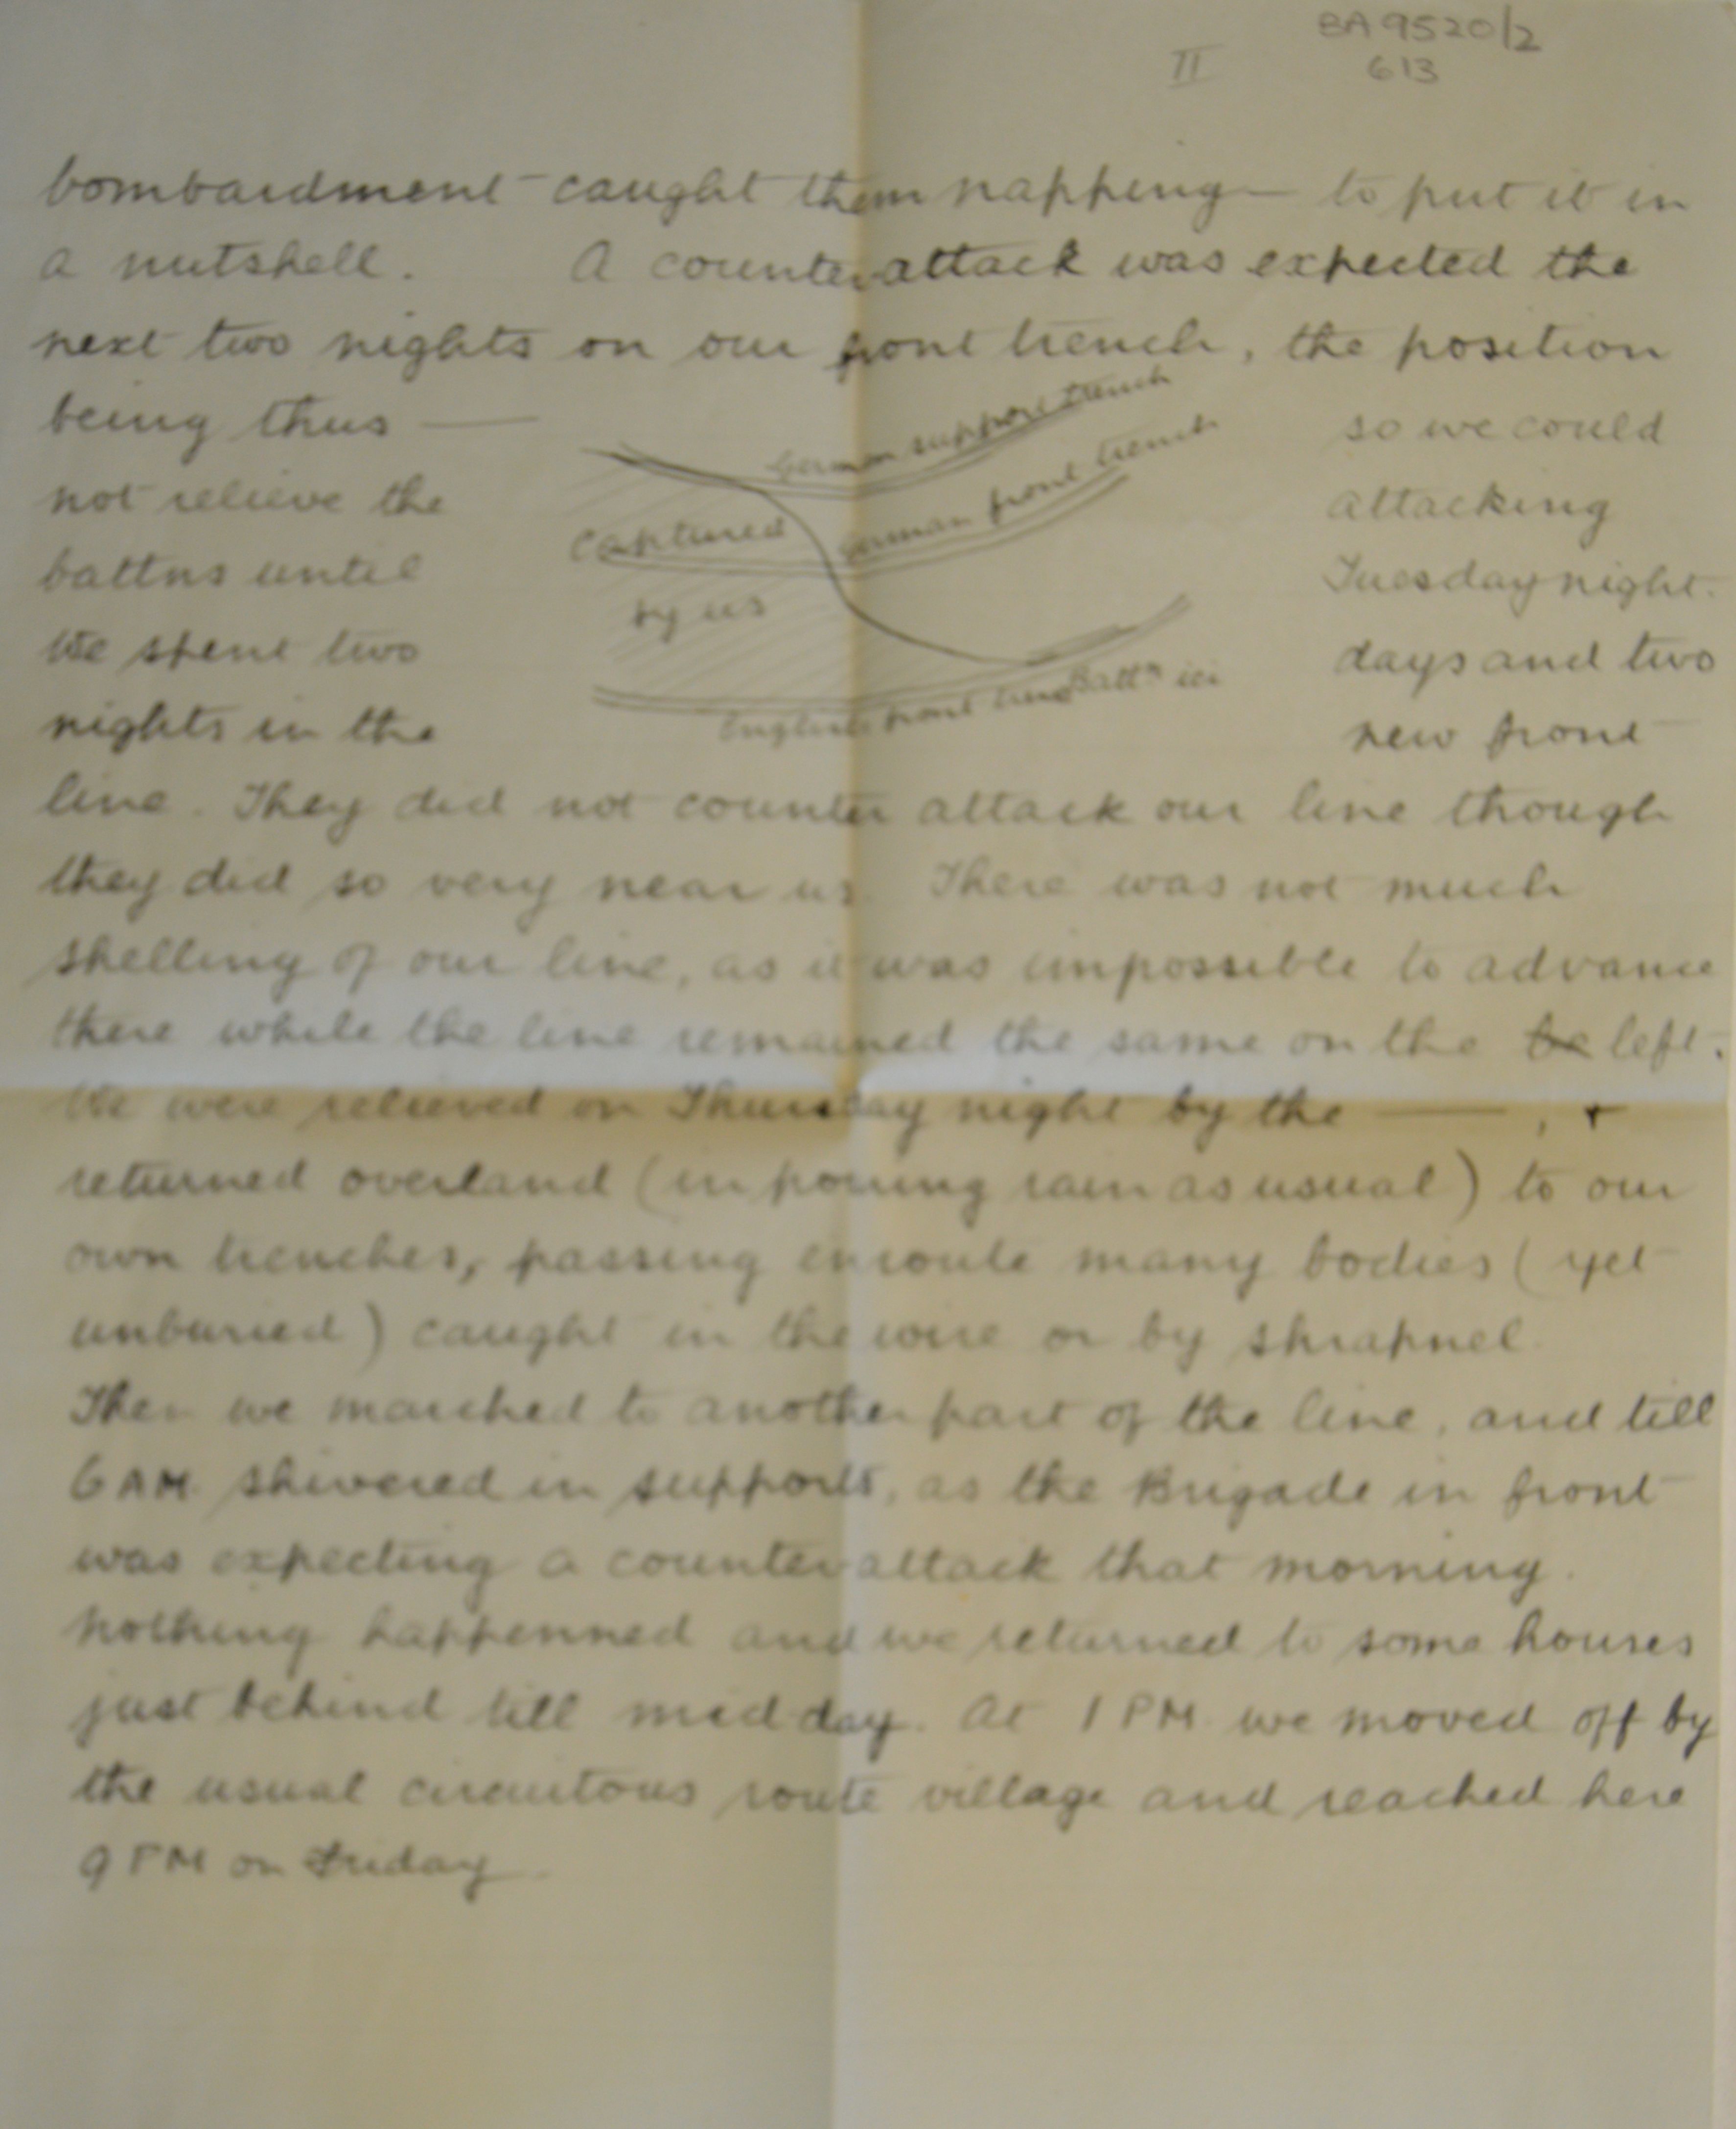 BA9520/2
II 613
bombardment - caught them napping - to put it in
a nutshell. A counter attack was expected the
next two nights on our front trench, the position
being thus — so we could
not relieve the attacking
battns until Tuesday night.
We spent two days and two
nights in the new front
German support trench
German front trench
Captured
by us
Battn ici
English front line
line. They did not counter attack our line though
they did so very near us. There was not much
shelling of our line, as it was impossible to advance
there while the line remained the same on the be left.
We were relieved on Thursday night by the ——, +
returned overland (in pouring rain as usual) to our
own trenches, passing enroute many bodies (yet
unburied) caught in the wire or by shrapnel.
Then we marched to another part of the line, and till
6 AM shivered in supports, as the Brigade in front
was expecting a counter attack that morning.
Nothing happenned and we returned to some houses
just behind till mid day. At 1 PM. we moved off by
the usual circuitous route village and reached here
9 PM on Friday.